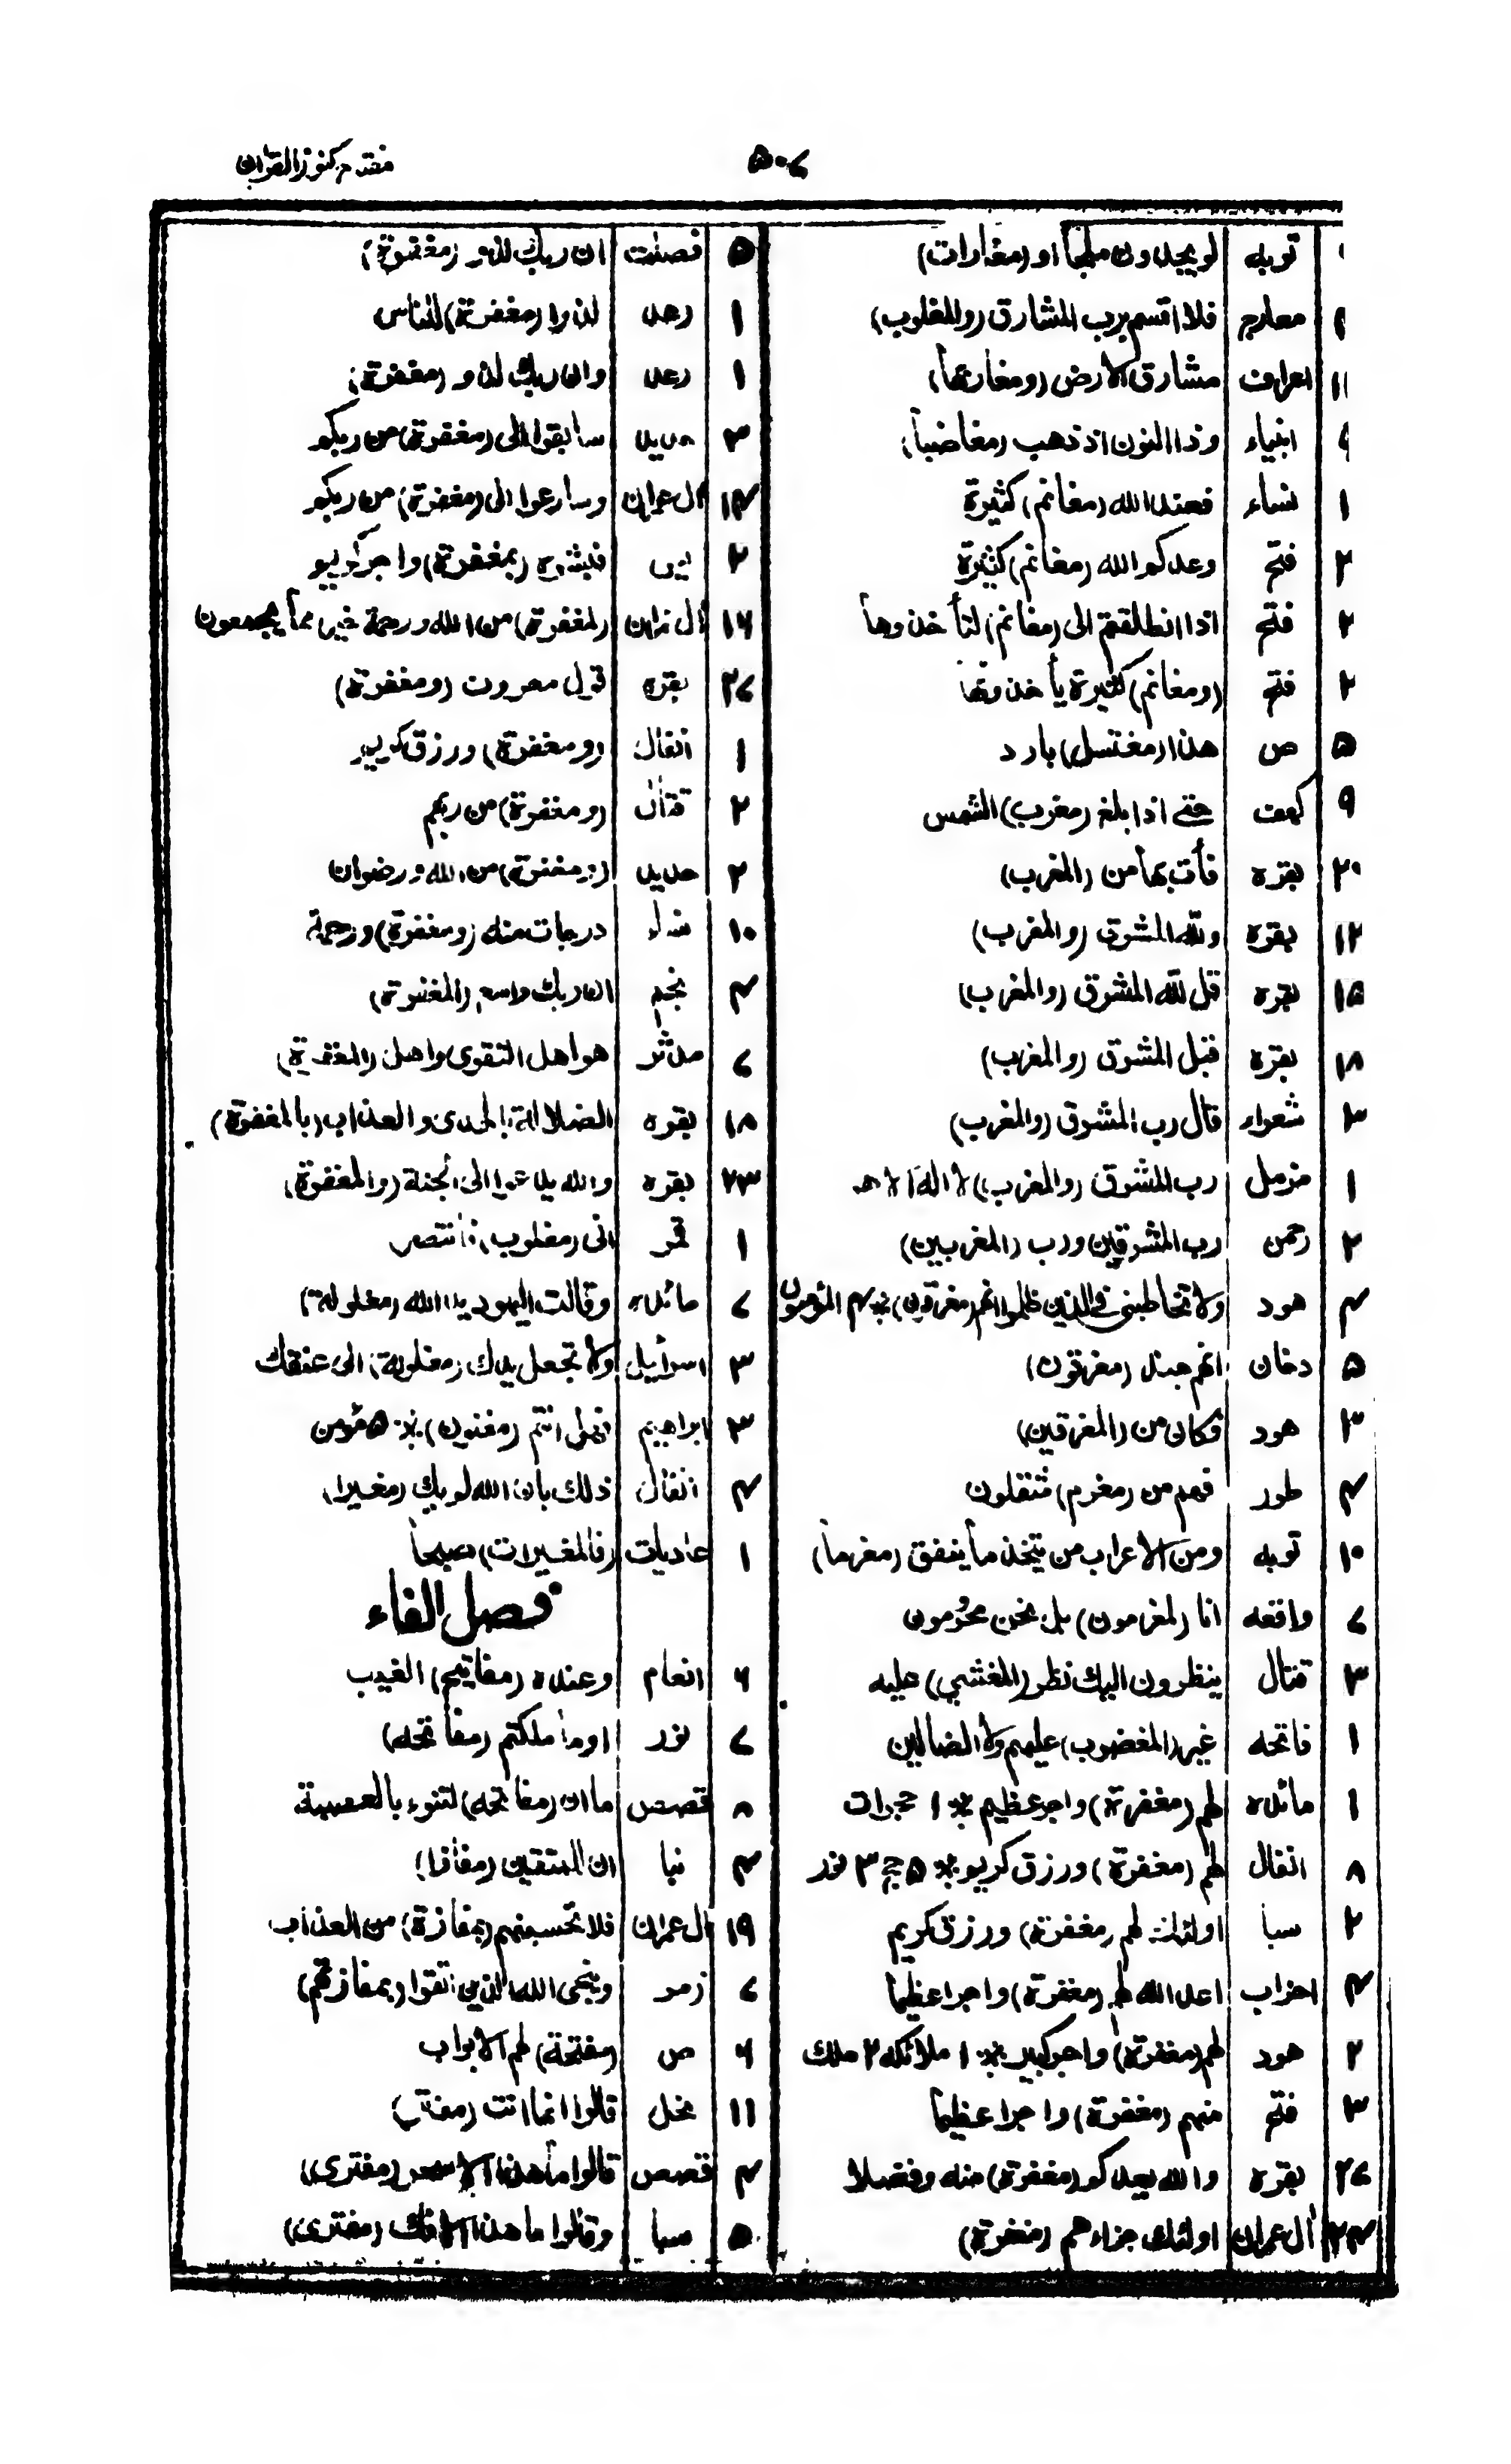 ۵۰۷
توبه لو یجدون ملجأ او (مغارات)
معارج فلا اقسم برب المشارق (والمغارب)
۱۱ اعراف مشارق الارض (ومغاربها)
انبیاء وذا النون اذ ذهب (مغاضبا)
۱ نساء فعند الله (مغانم) کثیرة
۲ فتح وعدکم الله (مغانم) کثیرة
۲ فتح اذا انطلقتم الی (مغانم) لتأخذوها
۲ فتح (ومغانم) کثیرة یأخذونها
۵ ص هذا (مغتسل) بارد
۹ کهف حتی اذا بلغ (مغرب) الشمس
۲۰ بقره فأت بها من (المغرب)
۱۲ بقره ولله المشرق (والمغرب)
۱۵ بقره قل لله المشرق (والمغرب)
۱۸ بقره قبل المشرق (والمغرب)
۳ شعراء قال رب المشرق (والمغرب)
۱ مزمل رب المشرق (والمغرب) لا اله الا هو
۲ رحمن رب المشرقین ورب (المغربین)
۴ هود ولا تخاطبنی فی الذین ظلموا انهم (مغرقون) ۴ المؤمنون
۵ دخان انهم جند (مغرقون)
۳ هود فکان من (المغرقین)
۴ طور فهم من (مغرم) مثقلون
۱۰ توبه ومن الاعراب من یتخذ ما ینفق (مغرما)
۷ واقعه انا (لمغرمون) بل نحن محرومون
۳ قتال ینظرون الیک نظر (المغشی) علیه
۱ فاتحه غیر (المغضوب) علیهم ولا الضالین
۱ مائده لهم (مغفرة) واجر عظیم ۱ حجرات
۸ انفال لهم (مغفرة) ورزق کریم ۵ حج ۳ نور
۲ سبا اولئک لهم (مغفرة) ورزق کریم
۴ احزاب اعد الله لهم (مغفرة) واجرا عظیما
۲ هود لهم (مغفرة) واجر کبیر ۱ ملائکه ۲ ملک
۳ فتح منهم (مغفرة) واجرا عظیما
۲۷ بقره والله یعدکم (مغفرة) منه وفضلا
آل عمران اولئک جزاءهم (مغفرة)
۵ فصلت ان ربک لذو (مغفرة)
۱ رعد لذو (مغفرة) للناس
۱ رعد وان ربک لذو (مغفرة)
۳ حدید سابقوا الی (مغفرة) من ربکم
۱۴ آل عمران وسارعوا الی (مغفرة) من ربکم
۲ یس فبشره (بمغفرة) واجر کریم
۱۶ آل عمران (لمغفرة) من الله ورحمة خیر مما یجمعون
۳۷ بقره قول معروف (ومغفرة)
۱ انفال (ومغفرة) ورزق کریم
۲ قتال (ومغفرة) من ربهم
۲ حدید (ومغفرة) من الله ورضوان
۱۰ نساء درجات منه (ومغفرة) ورحمة
۴ نجم ان ربک واسع (المغفرة)
۷ مدثر هو اهل التقوی واهل (المغفرة)
۱۸ بقره الضلالة بالهدی والعذاب (بالمغفرة)
۲۳ بقره والله یدعوا الی الجنة (والمغفرة)
۱ قمر انی (مغلوب) فانتصر
۷ مائده وقالت الیهود ید الله (مغلولة)
۳ اسرائیل ولا تجعل یدک (مغلولة) الی عنقک
۳ ابراهیم فهل انتم (مغنون) ۵ مؤمن
۴ انفال ذلک بان الله لم یک (مغیرا)
۱ عادیات (فالمغیرات) صبحا
فصل الفاء
۶ انعام وعنده (مفاتیح) الغیب
۷ نور او ما ملکتم (مفاتحه)
۸ قصص ما ان (مفاتحه) لتنوء بالعصبة
۴ نبا ان للمتقین (مفازا)
۱۹ آل عمران فلا تحسبنهم (بمفازة) من العذاب
۷ زمر وینجی الله الذین اتقوا (بمفازتهم)
۶ ص (مفتحة) لهم الابواب
۱۱ نحل قالوا انما انت (مفتر)
۴ قصص قالوا ما هذا الا سحر (مفتری)
۵ سبا وقالوا ما هذا الا افک (مفتری)